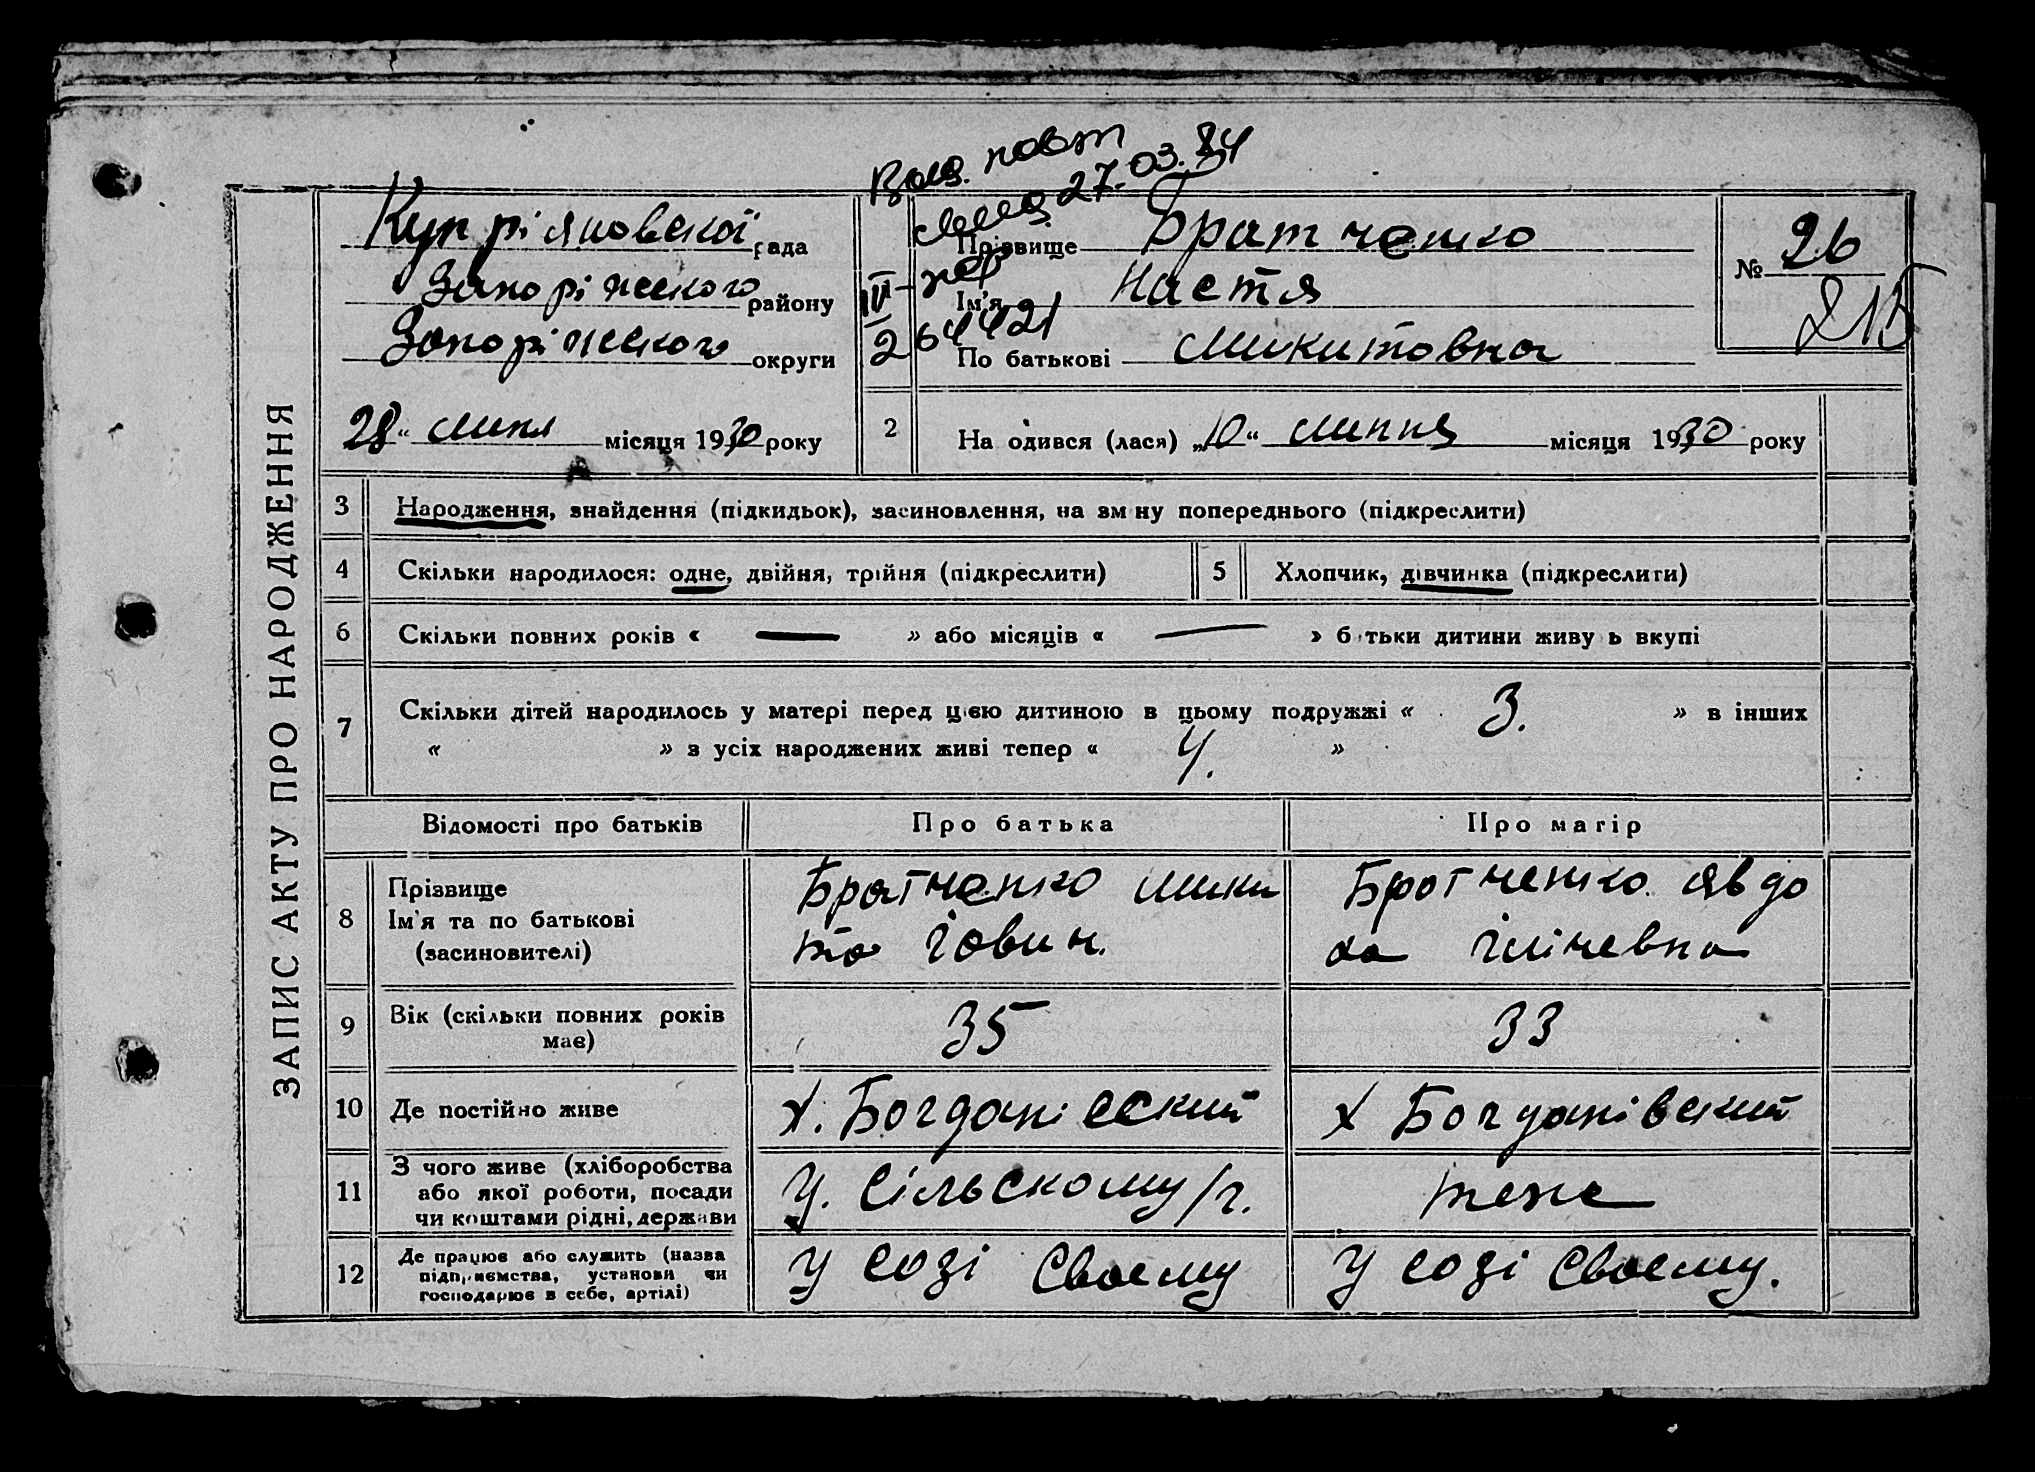 ЗАПИС АКТУ ПРО НАРОДЖЕННЯ
Вид. повт
свид 27.03.84
III-жс
264421
Купріяновської рада
Запоріжского району
Запоріжского округи
28 " липня місяця 1930 року
Прізвище Братченко
Ім'я Настя
По батькові Микитовна
№ 26
2 На одився (лася) „10" липня місяця 1930 року
3 Народження, знайдення (підкидьок), засиновлення, на зм ну попереднього (підкреслити)
4 Скільки народилося: одне, двійня, трійня (підкреслити)
5 Хлопчик, дівчинка (підкреслити)
6 Скільки повних років « — » або місяців « — » б тьки дитини живу ь вкупі
7 Скільки дітей народилось у матері перед цією дитиною в цьому подружжі « 3. » в інших
« » з усіх народжених живі тепер « 4. »
Відомості про батьків Про батька Про матір
8 Прізвище
Ім'я та по батькові
(засиновителі)
Братченко Мики
та Йовин.
Братченко Явдо
ха
9 Вік (скільки повних років
має)
35 33
10 Де постійно живе х. Богданієский х Богданівский
11 З чого живе (хліборобства
або якої роботи, посади
чи коштами рідні, держави
У. Сільскому/г. теже
12 Де працює або служить (назва
підприємства, установи чи
господарює в себе, артілі)
У созі Своему У созі Своему.